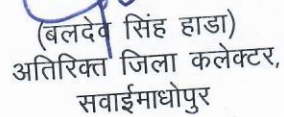 (बलदेव सिंह हाडा)
अतिरिक्त जिला कलेक्टर,
सवाईमाधोपुर